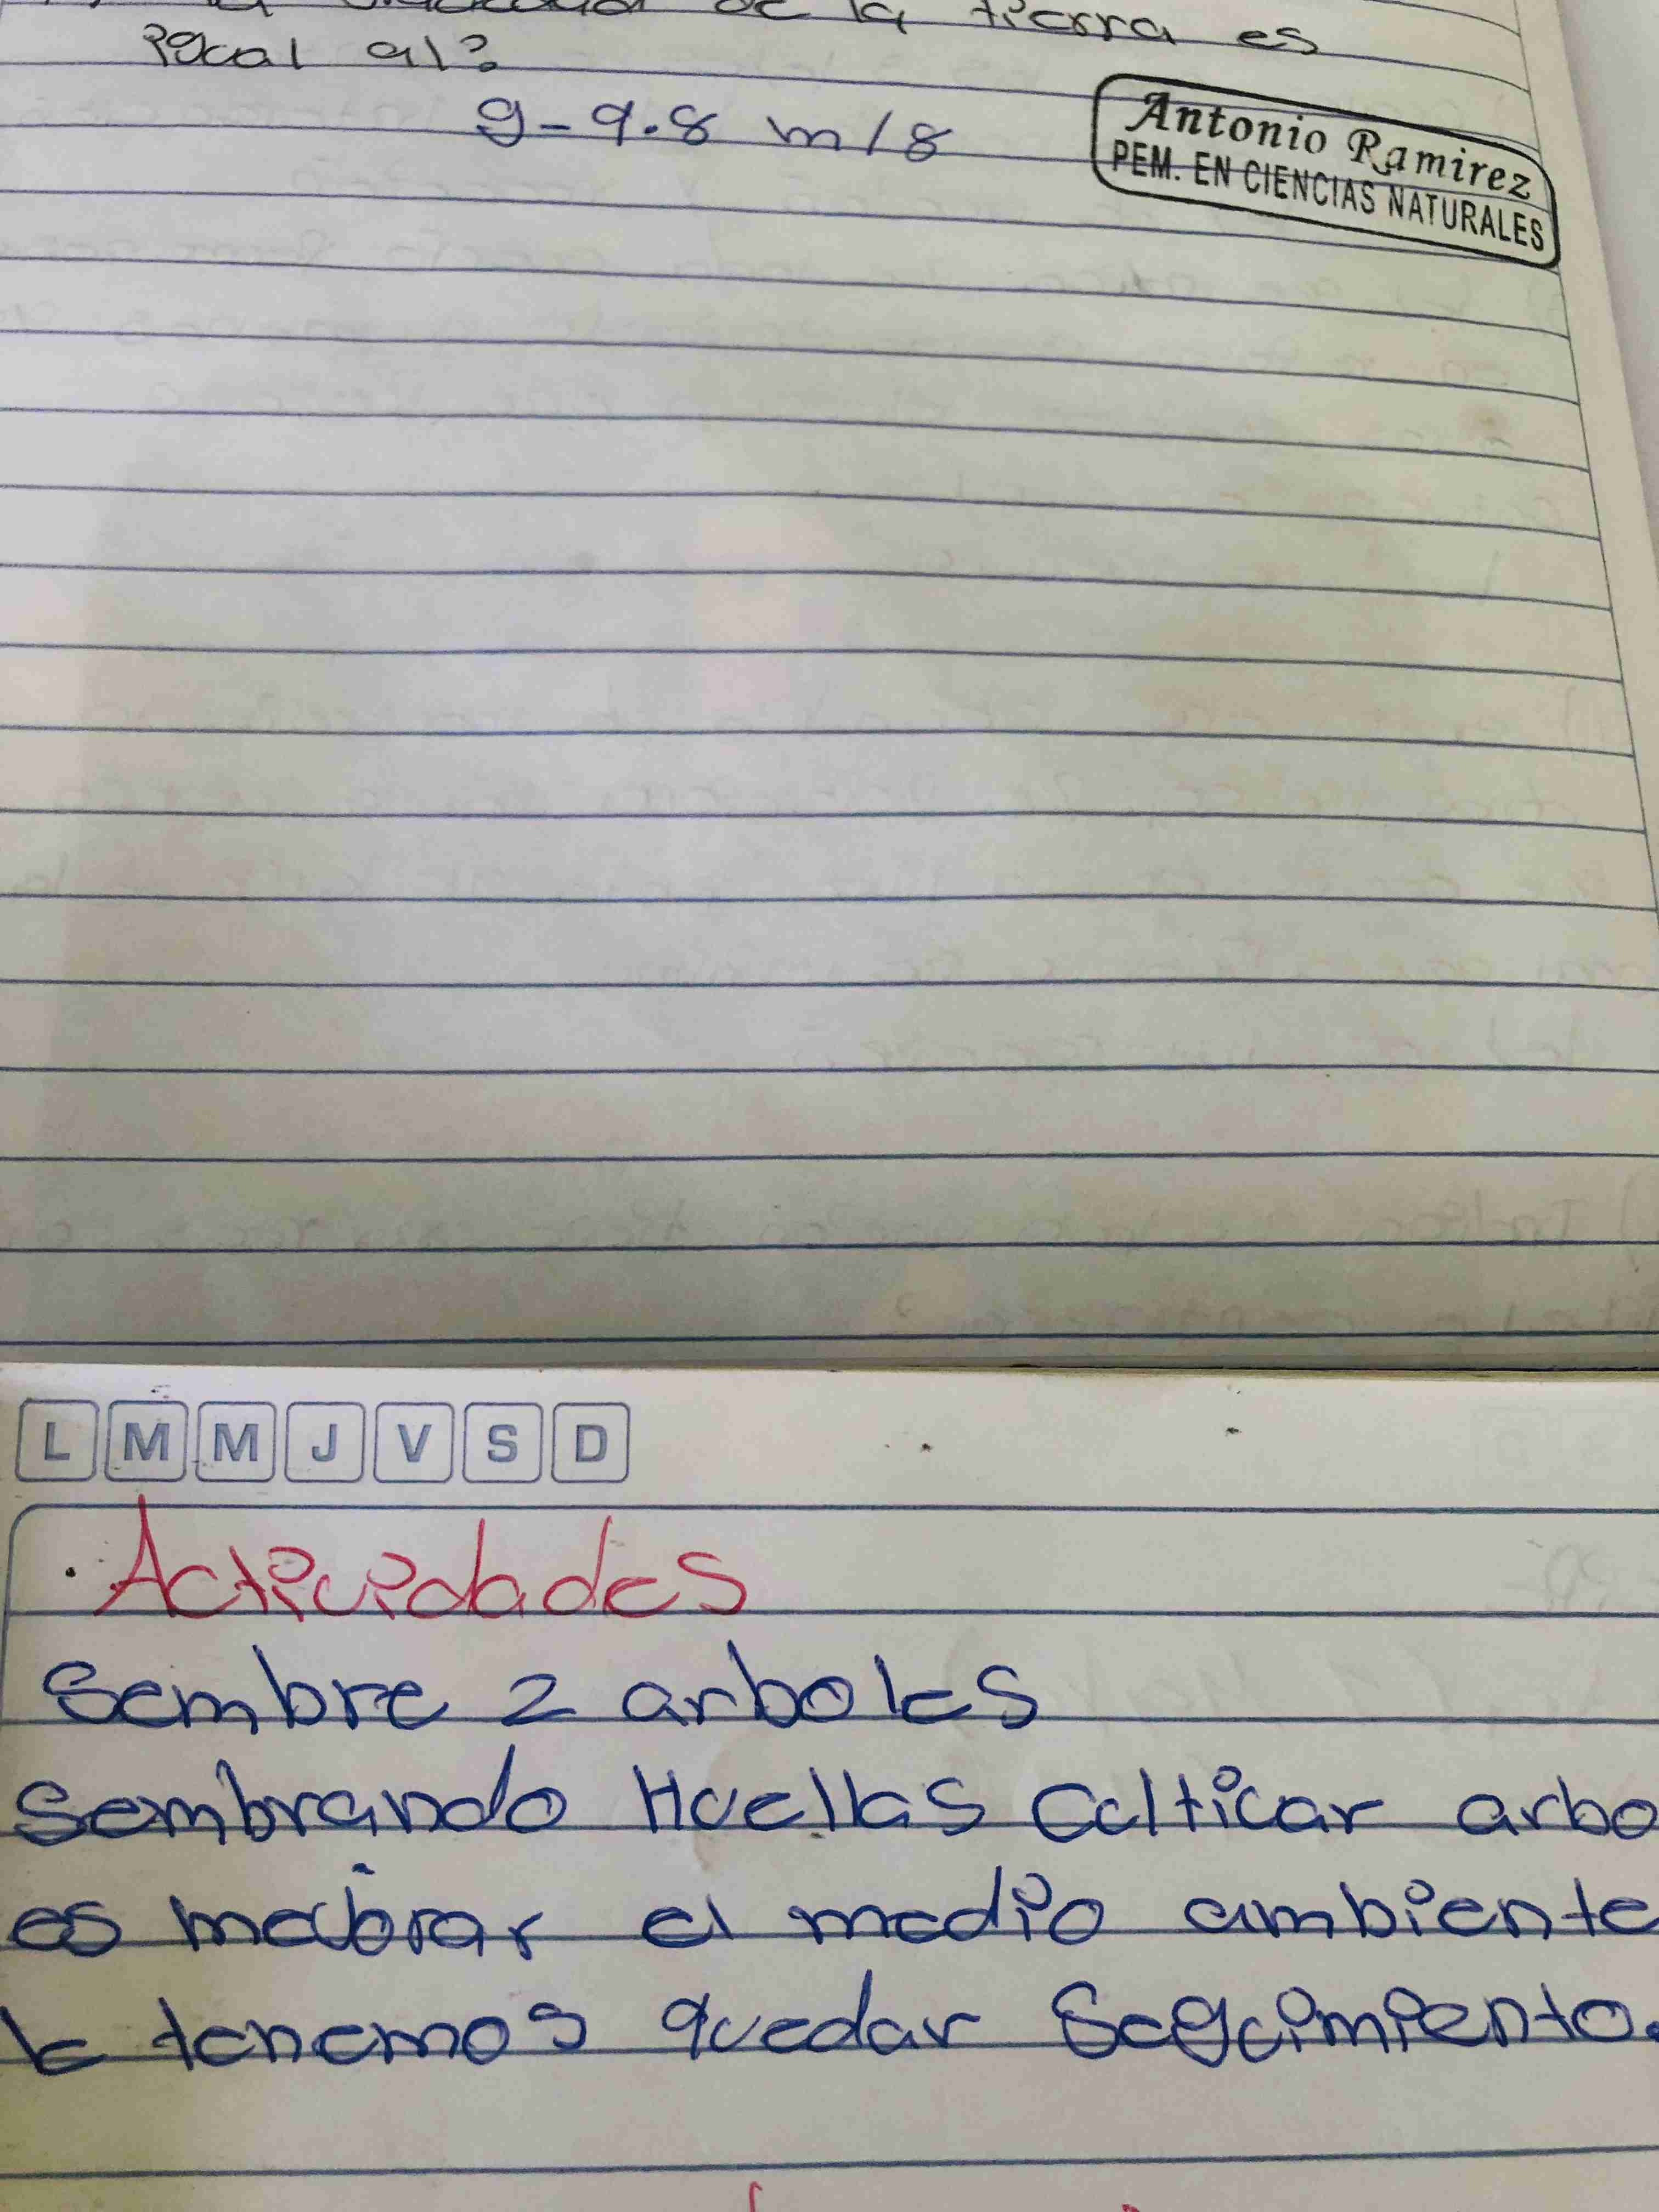 de la tierra es
igual al?
g - 9.8 m/8
Antonio Ramirez
PEM. EN CIENCIAS NATURALES
L M M J V S D
. Actividades
Sembre 2 arboles
Sembrando Huellas Culticar arbo
es mejorar el medio ambiente
le tenemos quedar Seguimiento.